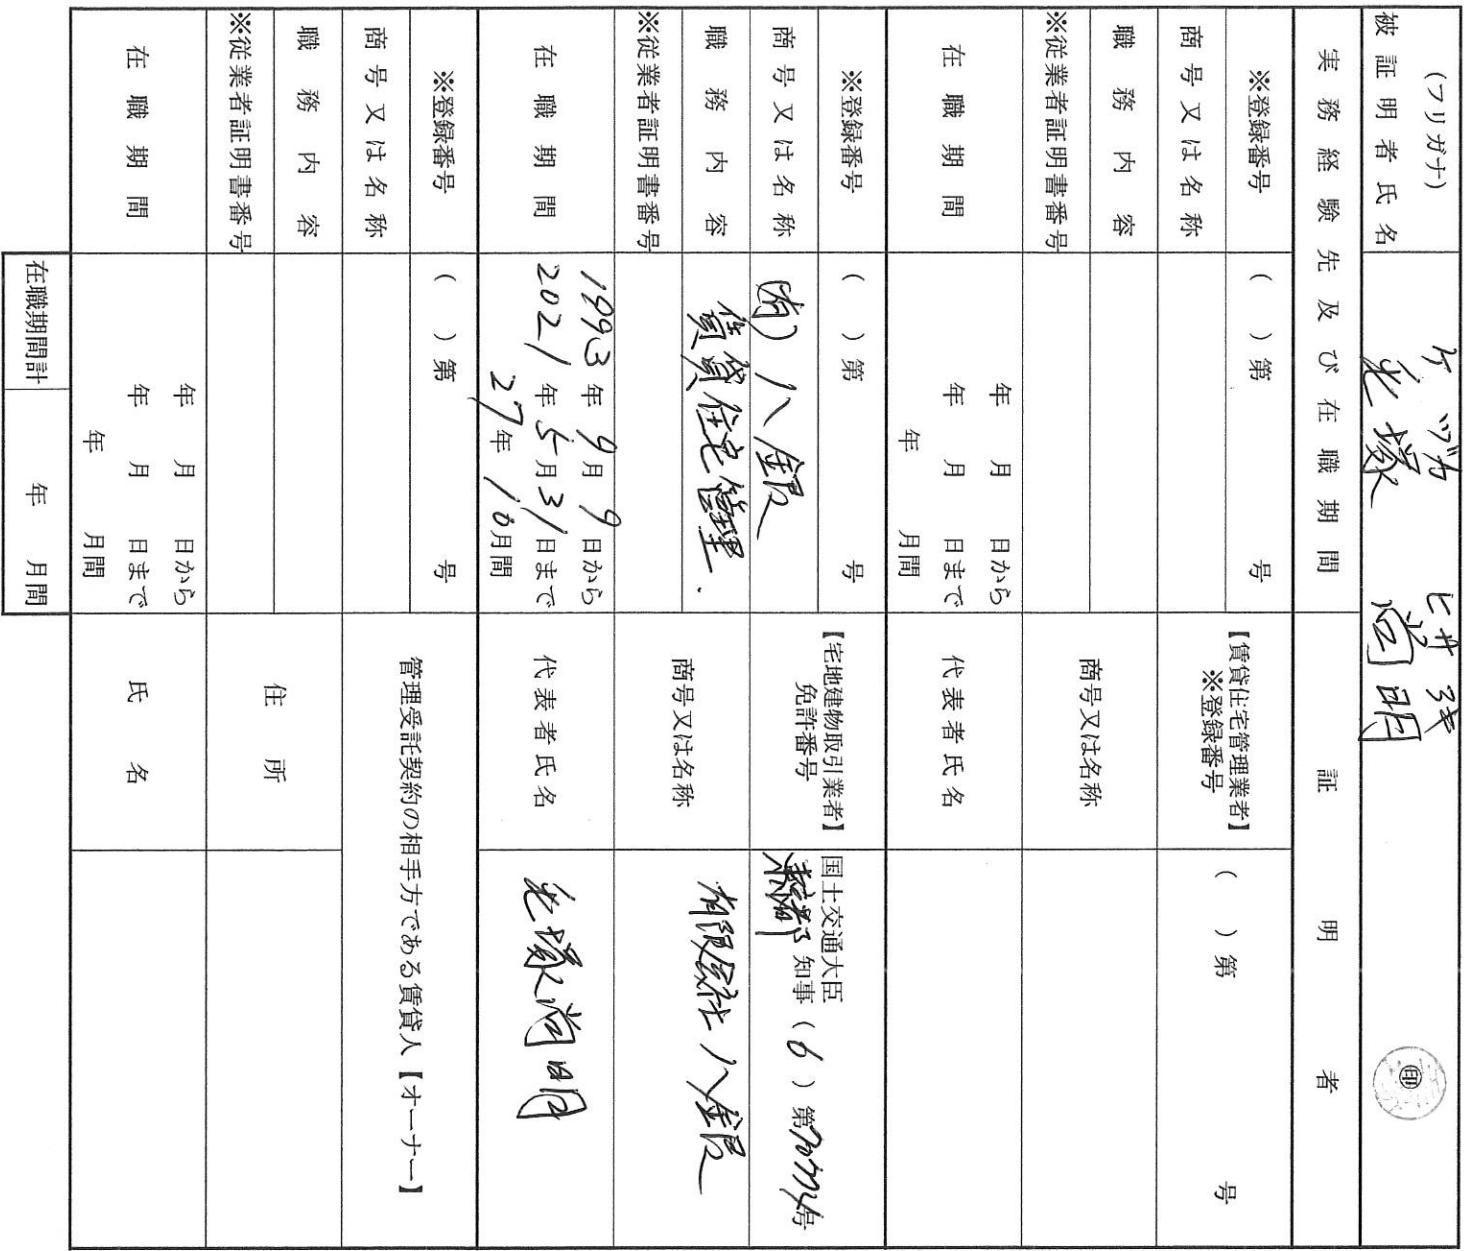 (フリガナ) ケヅカ ヒサアキ
被証明者氏名 毛塚 尚明 ㊞
実務経験先及び在職期間 証明者
※登録番号 ( )第 号
商号又は名称
職務内容
※従業者証明書番号
在職期間 年 月 日から
年 月 日まで
年 月間
【賃貸住宅管理業者】
※登録番号 ( )第 号
商号又は名称
代表者氏名
※登録番号 ( )第 号
商号又は名称 (有)八銀
職務内容 賃貸住宅管理.
※従業者証明書番号
在職期間 1993年9月9日から
2021年5月31日まで
27年10月間
【宅地建物取引業者】 国土交通大臣
免許番号 知事(6)第 号
商号又は名称 有限会社八銀
代表者氏名 毛塚尚明
※登録番号 ( )第 号
商号又は名称
職務内容
※従業者証明書番号
在職期間 年 月 日から
年 月 日まで
年 月間
管理受託契約の相手方である賃貸人【オーナー】
住所
氏名
在職期間計 年 月間